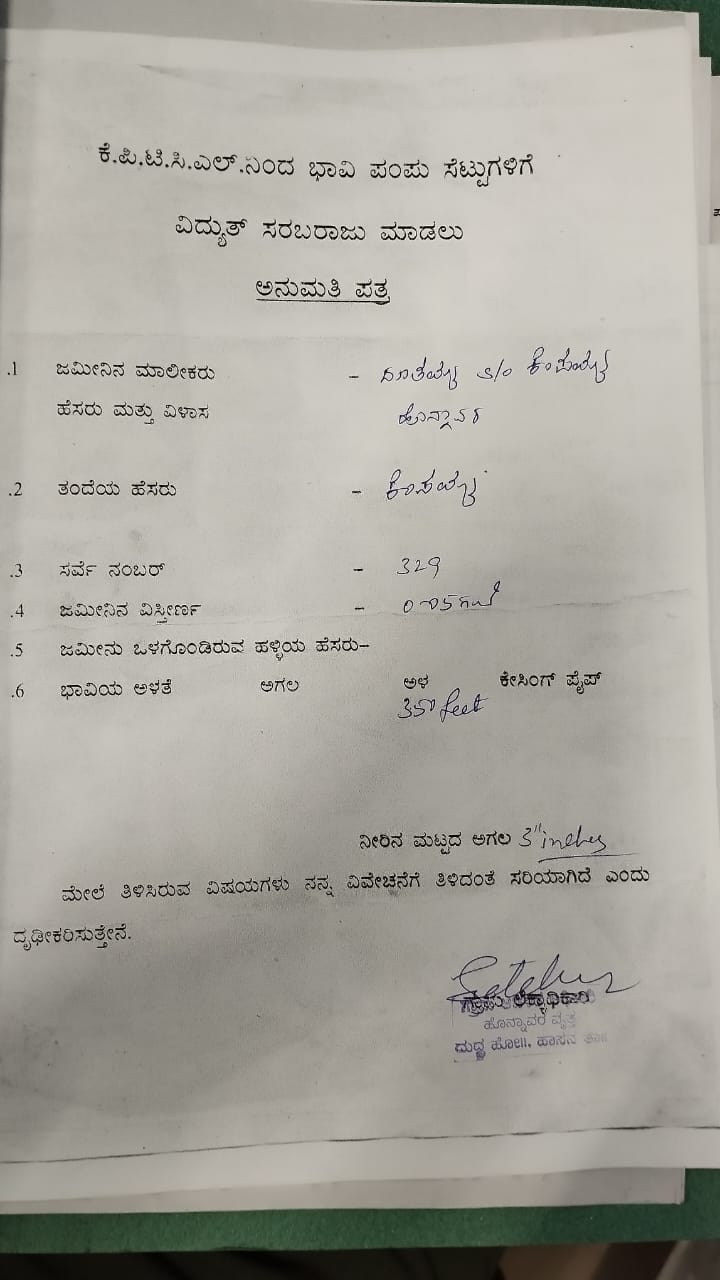 ಕೆ.ಪಿ.ಟಿ.ಸಿ.ಎಲ್.ನಿಂದ ಭಾವಿ ಪಂಪು ಸೆಟ್ಟುಗಳಿಗೆ
ವಿದ್ಯುತ್ ಸರಬರಾಜು ಮಾಡಲು
ಅನುಮತಿ ಪತ್ರ
.1 ಜಮೀನಿನ ಮಾಲೀಕರು – S/o
ಹೆಸರು ಮತ್ತು ವಿಳಾಸ ಹೊನ್ನಾವರ
.2 ತಂದೆಯ ಹೆಸರು –
.3 ಸರ್ವೆ ನಂಬರ್ – 329
.4 ಜಮೀನಿನ ವಿಸ್ತೀರ್ಣ –
.5 ಜಮೀನು ಒಳಗೊಂಡಿರುವ ಹಳ್ಳಿಯ ಹೆಸರು–
.6 ಭಾವಿಯ ಅಳತೆ ಅಗಲ ಅಳ ಕೇಸಿಂಗ್ ಪೈಪ್
350 feet
ನೀರಿನ ಮಟ್ಟದ ಅಗಲ 3" inches
ಮೇಲೆ ತಿಳಿಸಿರುವ ವಿಷಯಗಳು ನನ್ನ ವಿವೇಚನೆಗೆ ತಿಳಿದಂತೆ ಸರಿಯಾಗಿದೆ ಎಂದು
ದೃಢೀಕರಿಸುತ್ತೇನೆ.
ಹೊನ್ನಾವರ ವೃತ್ತ
ದುದ್ದ ಹೋ||, ಹಾಸನ ತಾ||